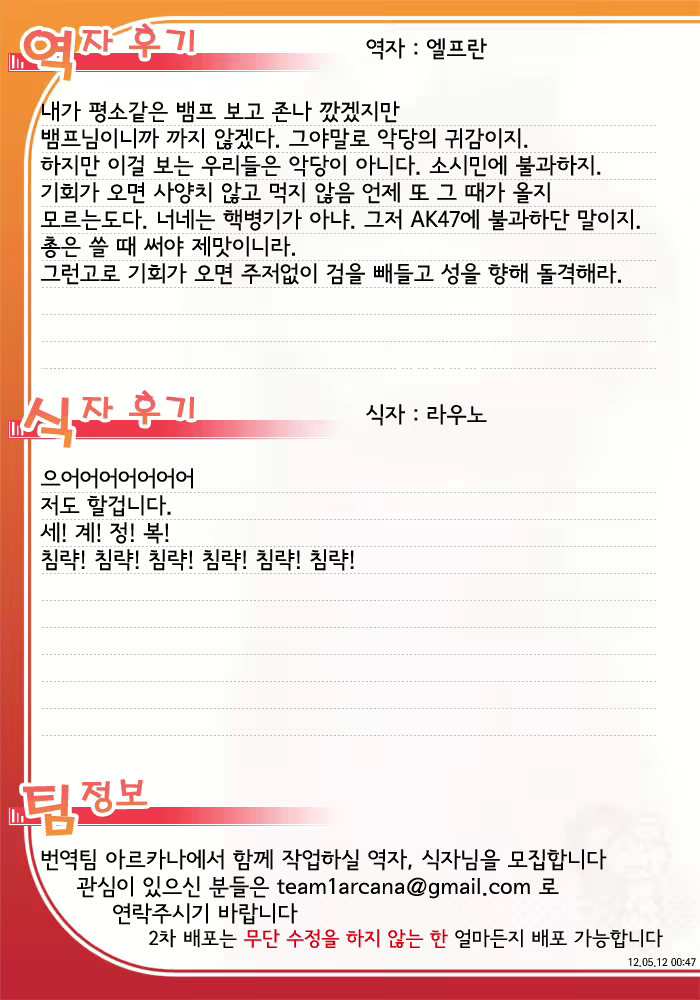 역자 후기
역자 : 엘프란
내가 평소같은 뱀프 보고 존나 깠겠지만
뱀프님이니까 까지 않겠다. 그야말로 악당의 귀감이지.
하지만 이걸 보는 우리들은 악당이 아니다. 소시민에 불과하지.
기회가 오면 사양치 않고 먹지 않음 언제 또 그 때가 올지
모르는도다. 너네는 핵병기가 아냐. 그저 AK47에 불과하단 말이지.
총은 쓸 때 써야 제맛이니라.
그런고로 기회가 오면 주저없이 검을 빼들고 성을 향해 돌격해라.
식자 후기
식자 : 라우노
으어어어어어어어
저도 할겁니다.
세! 계! 정! 복!
침략! 침략! 침략! 침략! 침략! 침략!
팀 정보
번역팀 아르카나에서 함께 작업하실 역자, 식자님을 모집합니다
관심이 있으신 분들은 team1arcana@gmail.com 로
연락주시기 바랍니다
2차 배포는 무단 수정을 하지 않는 한 얼마든지 배포 가능합니다
12.05.12 00:47